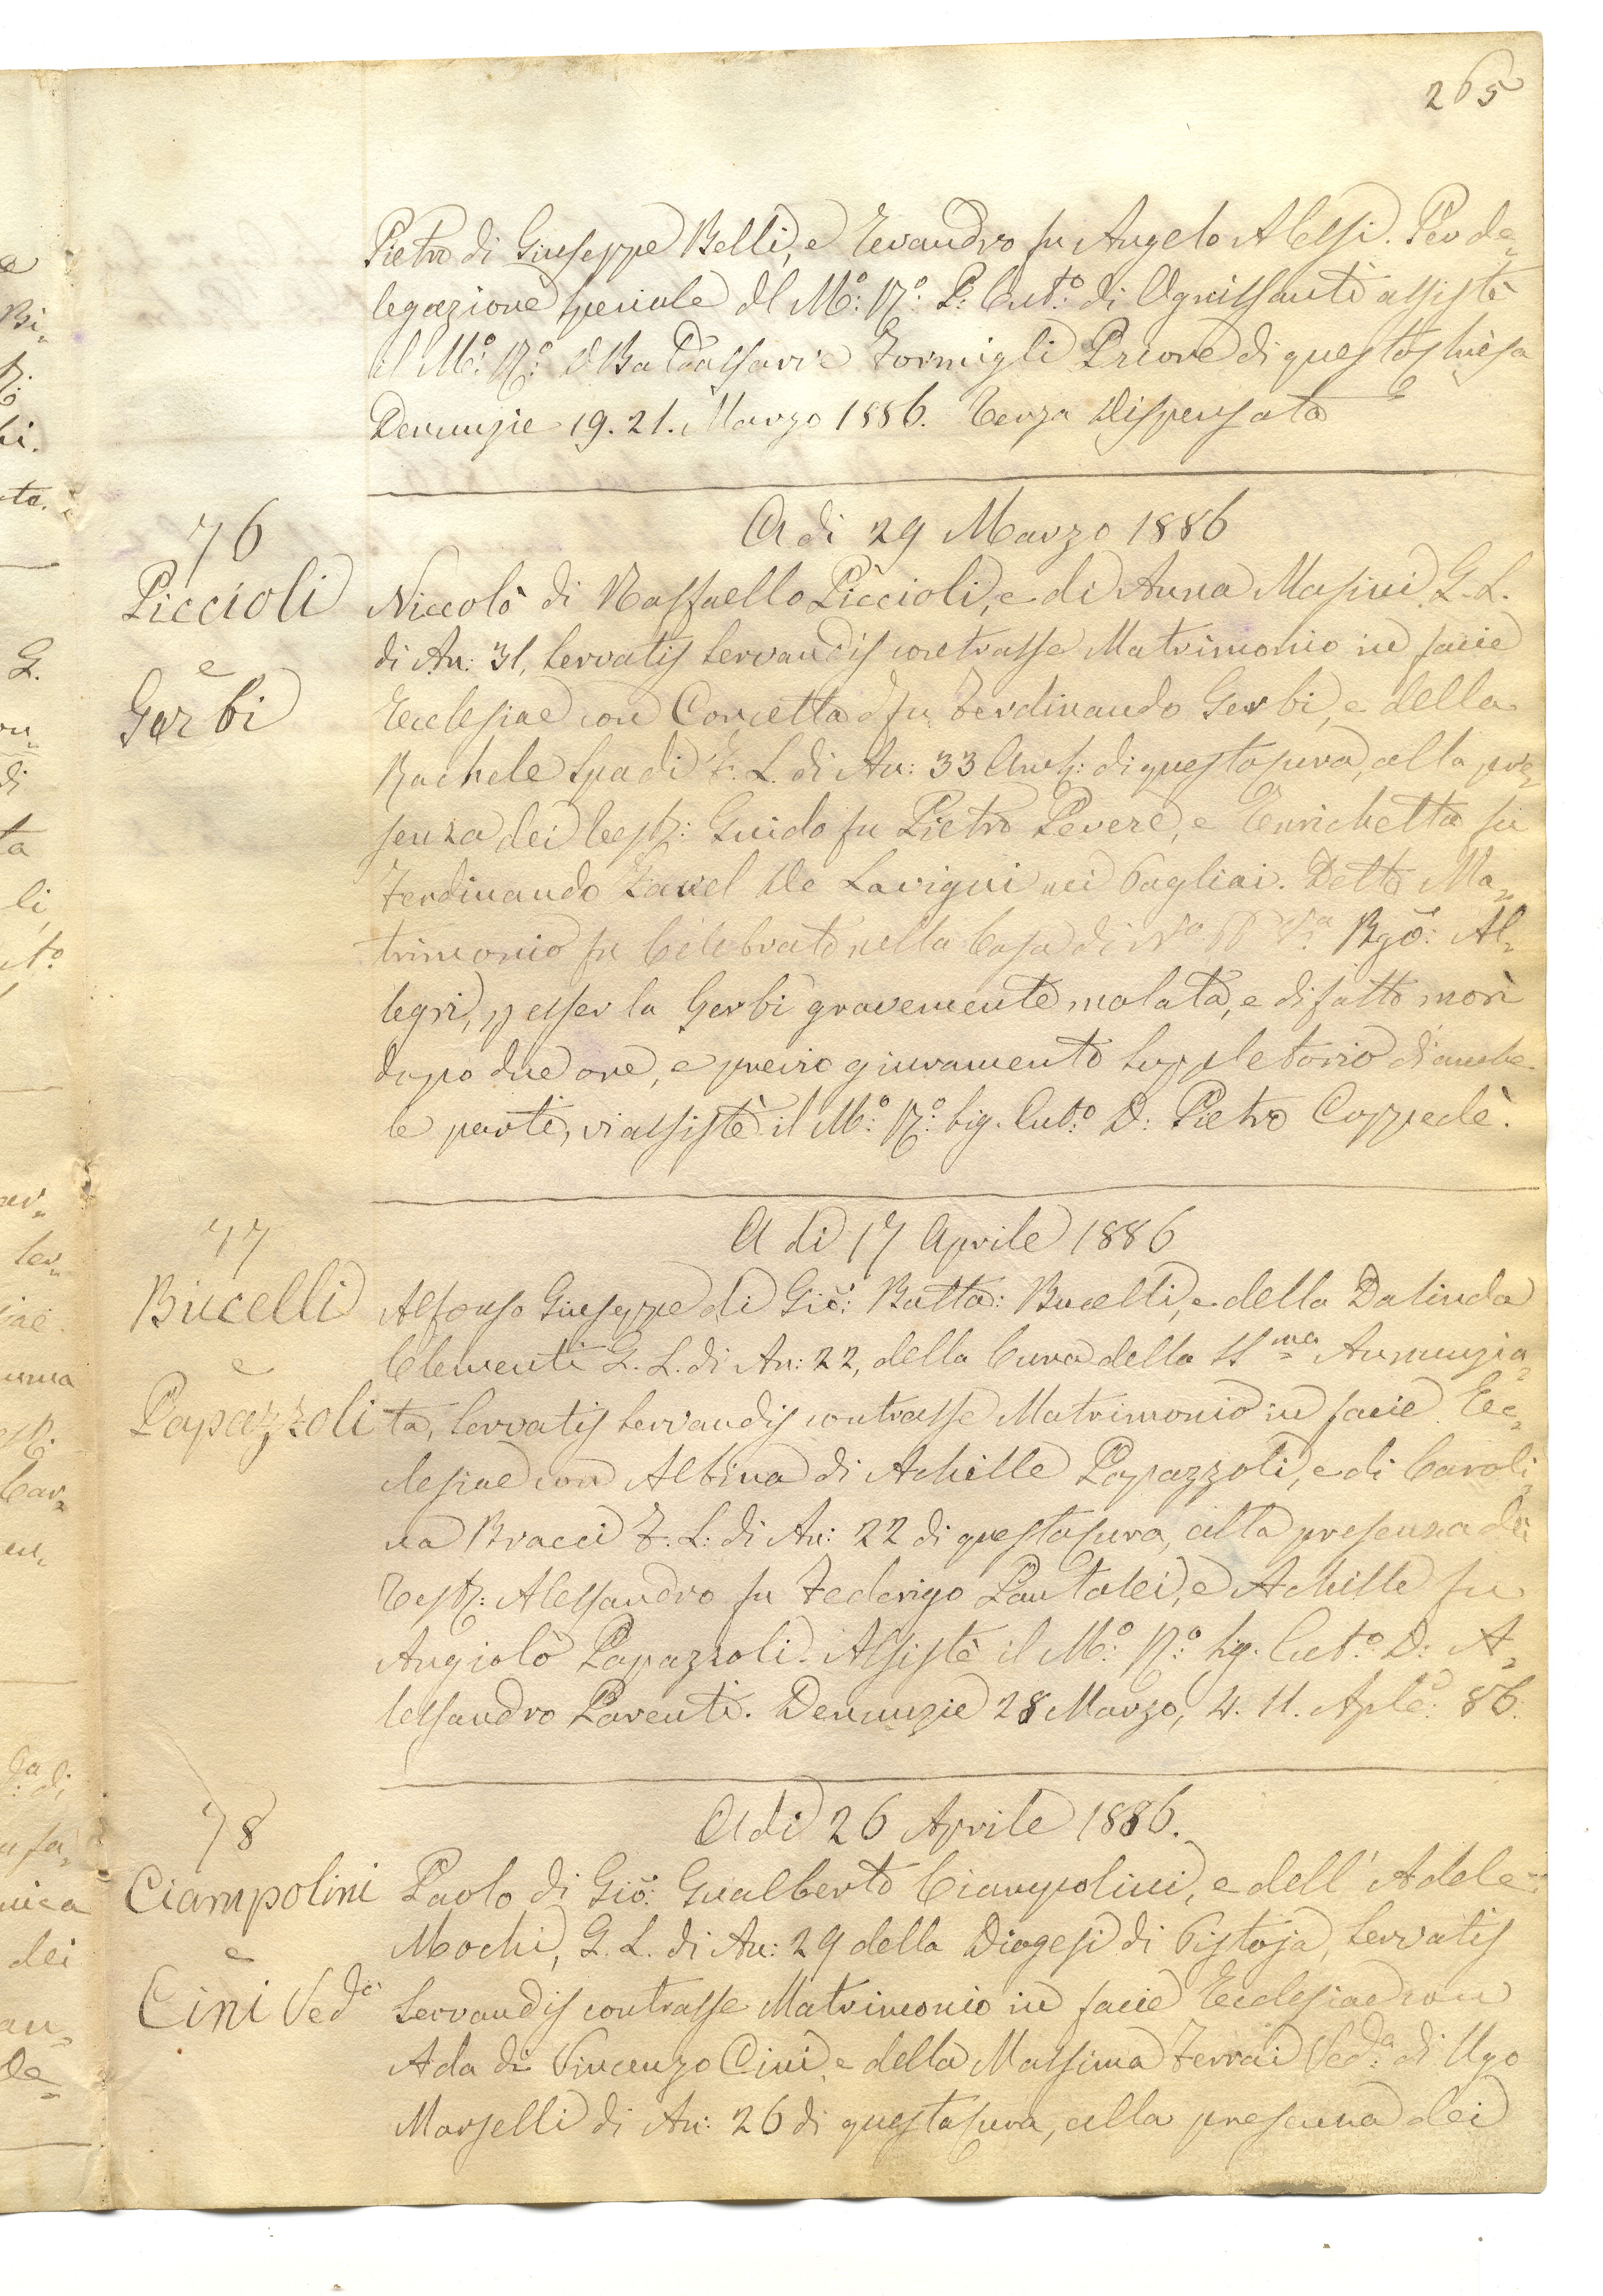 265
Pietro di Giuseppe Belli, e Evandro fu Angelo Alessi. Per de„
legazione speciale del M:º R:º P: Cut:º di Ognissanti assistè
il M:º R:º D Baldassarre Formigli Priore di questa Chiesa
Denunzie 19. 21. Marzo 1886. Terza Dispensata
A di 29 Marzo 1886
76
Piccioli
e
Gerbi
Niccolò di Raffaello Piccioli, e di Anna Masini G. L.
di An: 31, Servatis Servandis contrasse Matrimonio in facie
Ecclesiae con Concetta fu Ferdinando Gerbi, e della
Rachele Spadi F. L. di An: 33 Amb: di questa Cura, alla pre„
senza dei Testi: Guido fu Pietro Pevere, e Enrichetta fu
Ferdinando De Lavigni nei Pagliai. Detto Ma„
trimonio fu Celebrato nella Casa di Nº Vª Bgõ: Al„
legri, p esser la Gerbi gravemente malata, e difatto morì
dopo due ore, e previo giuramento Suppletorio di ambe
le parti, vi assistè il M:º R:º Sig. Cut:º D: Pietro Coppedè.
A di 17 Aprile 1886
77
Bucelli
e
Papazzoli
Alfonso Giuseppe di Giõ: Batta: Bucelli, e della Dalinda
Clementi G. L. di An: 22, della Cura della SS.ma Annunzia„
ta, Servatis Servandis contrasse Matrimonio in facie Ec„
clesiae con Albina di Achille Papazzoli, e di Caroli„
na Bracci F. L: di An: 22 di questa Cura, alla presenza dei
Testi: Alessandro fu Federigo Pantalei, e Achille fu
Angiolo Papazzoli. Assistè il M:º R:º Sig. Cut:º D: A„
lessandro Parenti. Denunzie 28 Marzo, 4. 11. Aple: 86.
A di 26 Aprile 1886.
78
Ciampolini
e
Cini Ved:
Paolo di Giõ: Gualberto Ciampolini, e dell' Adele
Mochi, G. L. di An: 29 della Diogesi di Pistoja, Servatis
Servandis contrasse Matrimonio in facie Ecclesiae con
Ada di Vincenzo Cini, e della Massima Ferrai Ved:ª di Ugo
Marselli di An: 26 di questa Cura, alla presenza dei